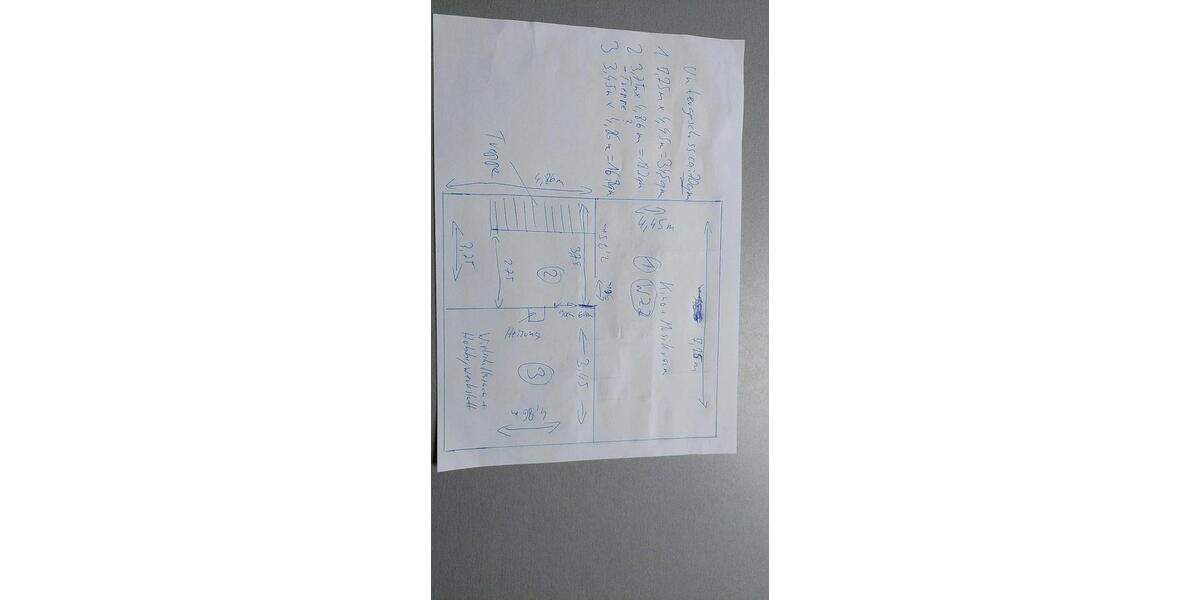 Untergeschoss ca. 70qm
1 7,75m x 4,45m = 34,5qm
2 3,75m x 4,86m = 18,2qm
- Treppe ?
3 3,45m x 4,86m = 16,8qm
Treppe
4,86m
4,45m
7,75m
Kino + Musikraum
1
WZ2
3,75
2
2,75
3,75
3,45
Heizung
3
4,86
Wirtschaftsraum +
Hobbywerkstatt